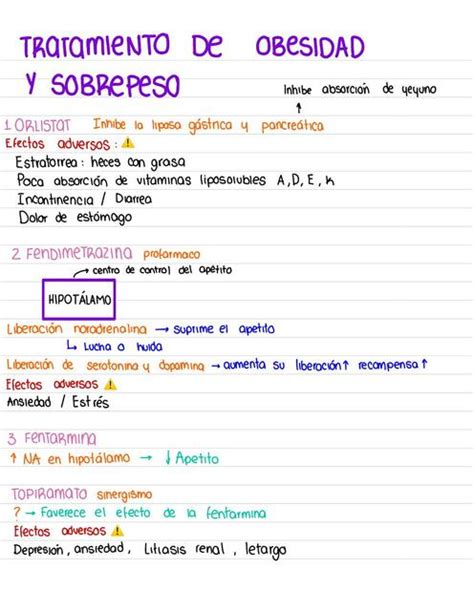 TRATAMIENTO DE OBESIDAD
Y SOBREPESO
Inhibe absorción de yeyuno
↑
1. ORLISTAT Inhibe la lipasa gástrica y pancreática
Efectos adversos : ⚠
Estratorrea : heces con grasa
Poca absorción de vitaminas liposolubles A, D, E, K
Incontinencia / Diarrea
Dolor de estómago
2. FENDIMETRAZINA profarmaco
→ centro de control del apetito
HIPOTÁLAMO
Liberación noradrenalina → suprime el apetito
↳ Lucha o huida
Liberación de serotonina y dopamina → aumenta su liberación↑ recompensa↑
Efectos adversos ⚠
Ansiedad / Estrés
3 FENTARMINA
↑ NA en hipotálamo → ↓ Apetito
TOPIRAMATO sinergismo
? → Favorece el efecto de la fentarmina
Efectos adversos ⚠
Depresión, ansiedad, Litiasis renal, letargo